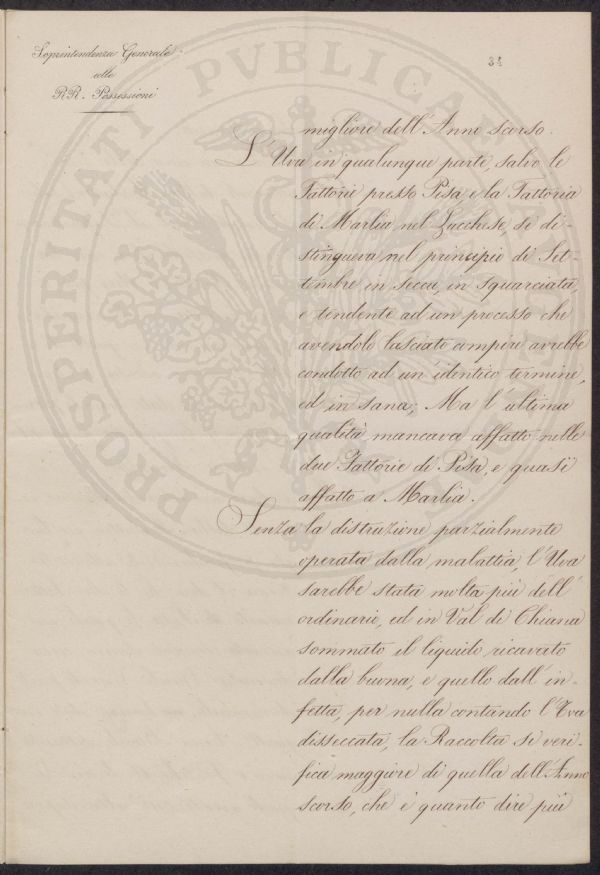 Soprintendenza Generale
alle
RR. Possessioni
34
PROSPERITATI PVBLICAE
migliore dell'Anno scorso.
L'Uva in qualunque parte, salvo le
Fattorie presso Pisa, e la Fattoria
di Marlia, nel Lucchese, si di-
stingueva nel principio di Set-
tembre in secca, in squarciata,
e tendente ad un processo che
avendolo lasciato compire avrebbe
condotto ad un'identico termine,
ed in sana; Ma l'ultima
qualità mancava affatto nelle
due Fattorie di Pisa, e quasi
affatto a Marlia.
Senza la distruzione parzialmente
operata dalla malattia, l'Uva
sarebbe stata molta più dell'
ordinario, ed in Val di Chiana
sommato il liquido ricavato
dalla buona, e quello dall'in-
fetta, per nulla contando l'Uva
disseccata, la Raccolta si veri-
fica maggiore di quella dell'Anno
scorso, che è quanto dire più